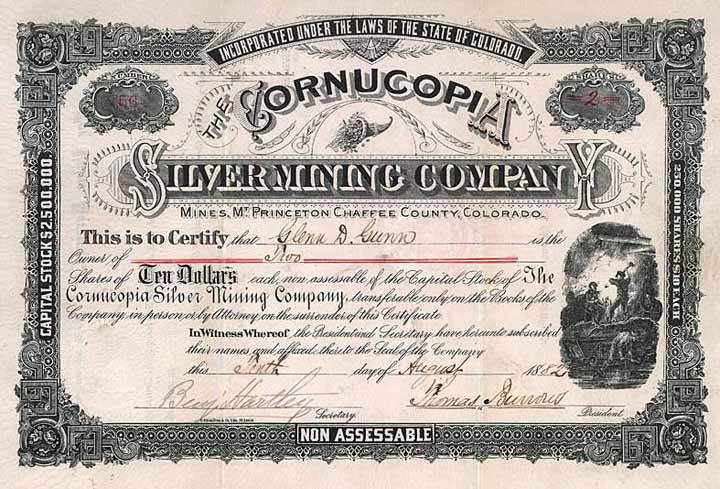 INCORPORATED UNDER THE LAWS OF THE STATE OF COLORADO.
66
2
THE CORNUCOPIA
SILVER MINING COMPANY
MINES, MT PRINCETON CHAFFEE COUNTY, COLORADO.
CAPITAL STOCK $2,500,000.
250,000 SHARES $10 EACH
This is to Certify that Glenn D. Gunn is the
Owner of Two
Shares of Ten Dollars each, non assessable of the Capital Stock of The
Cornucopia Silver Mining Company, transferable only on the Books of the
Company, in person, or by Attorney, on the surrender of this Certificate
In Witness Whereof the President and Secretary have hereunto subscribed
their names and affixed thereto the Seal of the Company
this Tenth day of August 1882
Benj. Hartley Thomas Burrows
Secretary. President.
NON ASSESSABLE